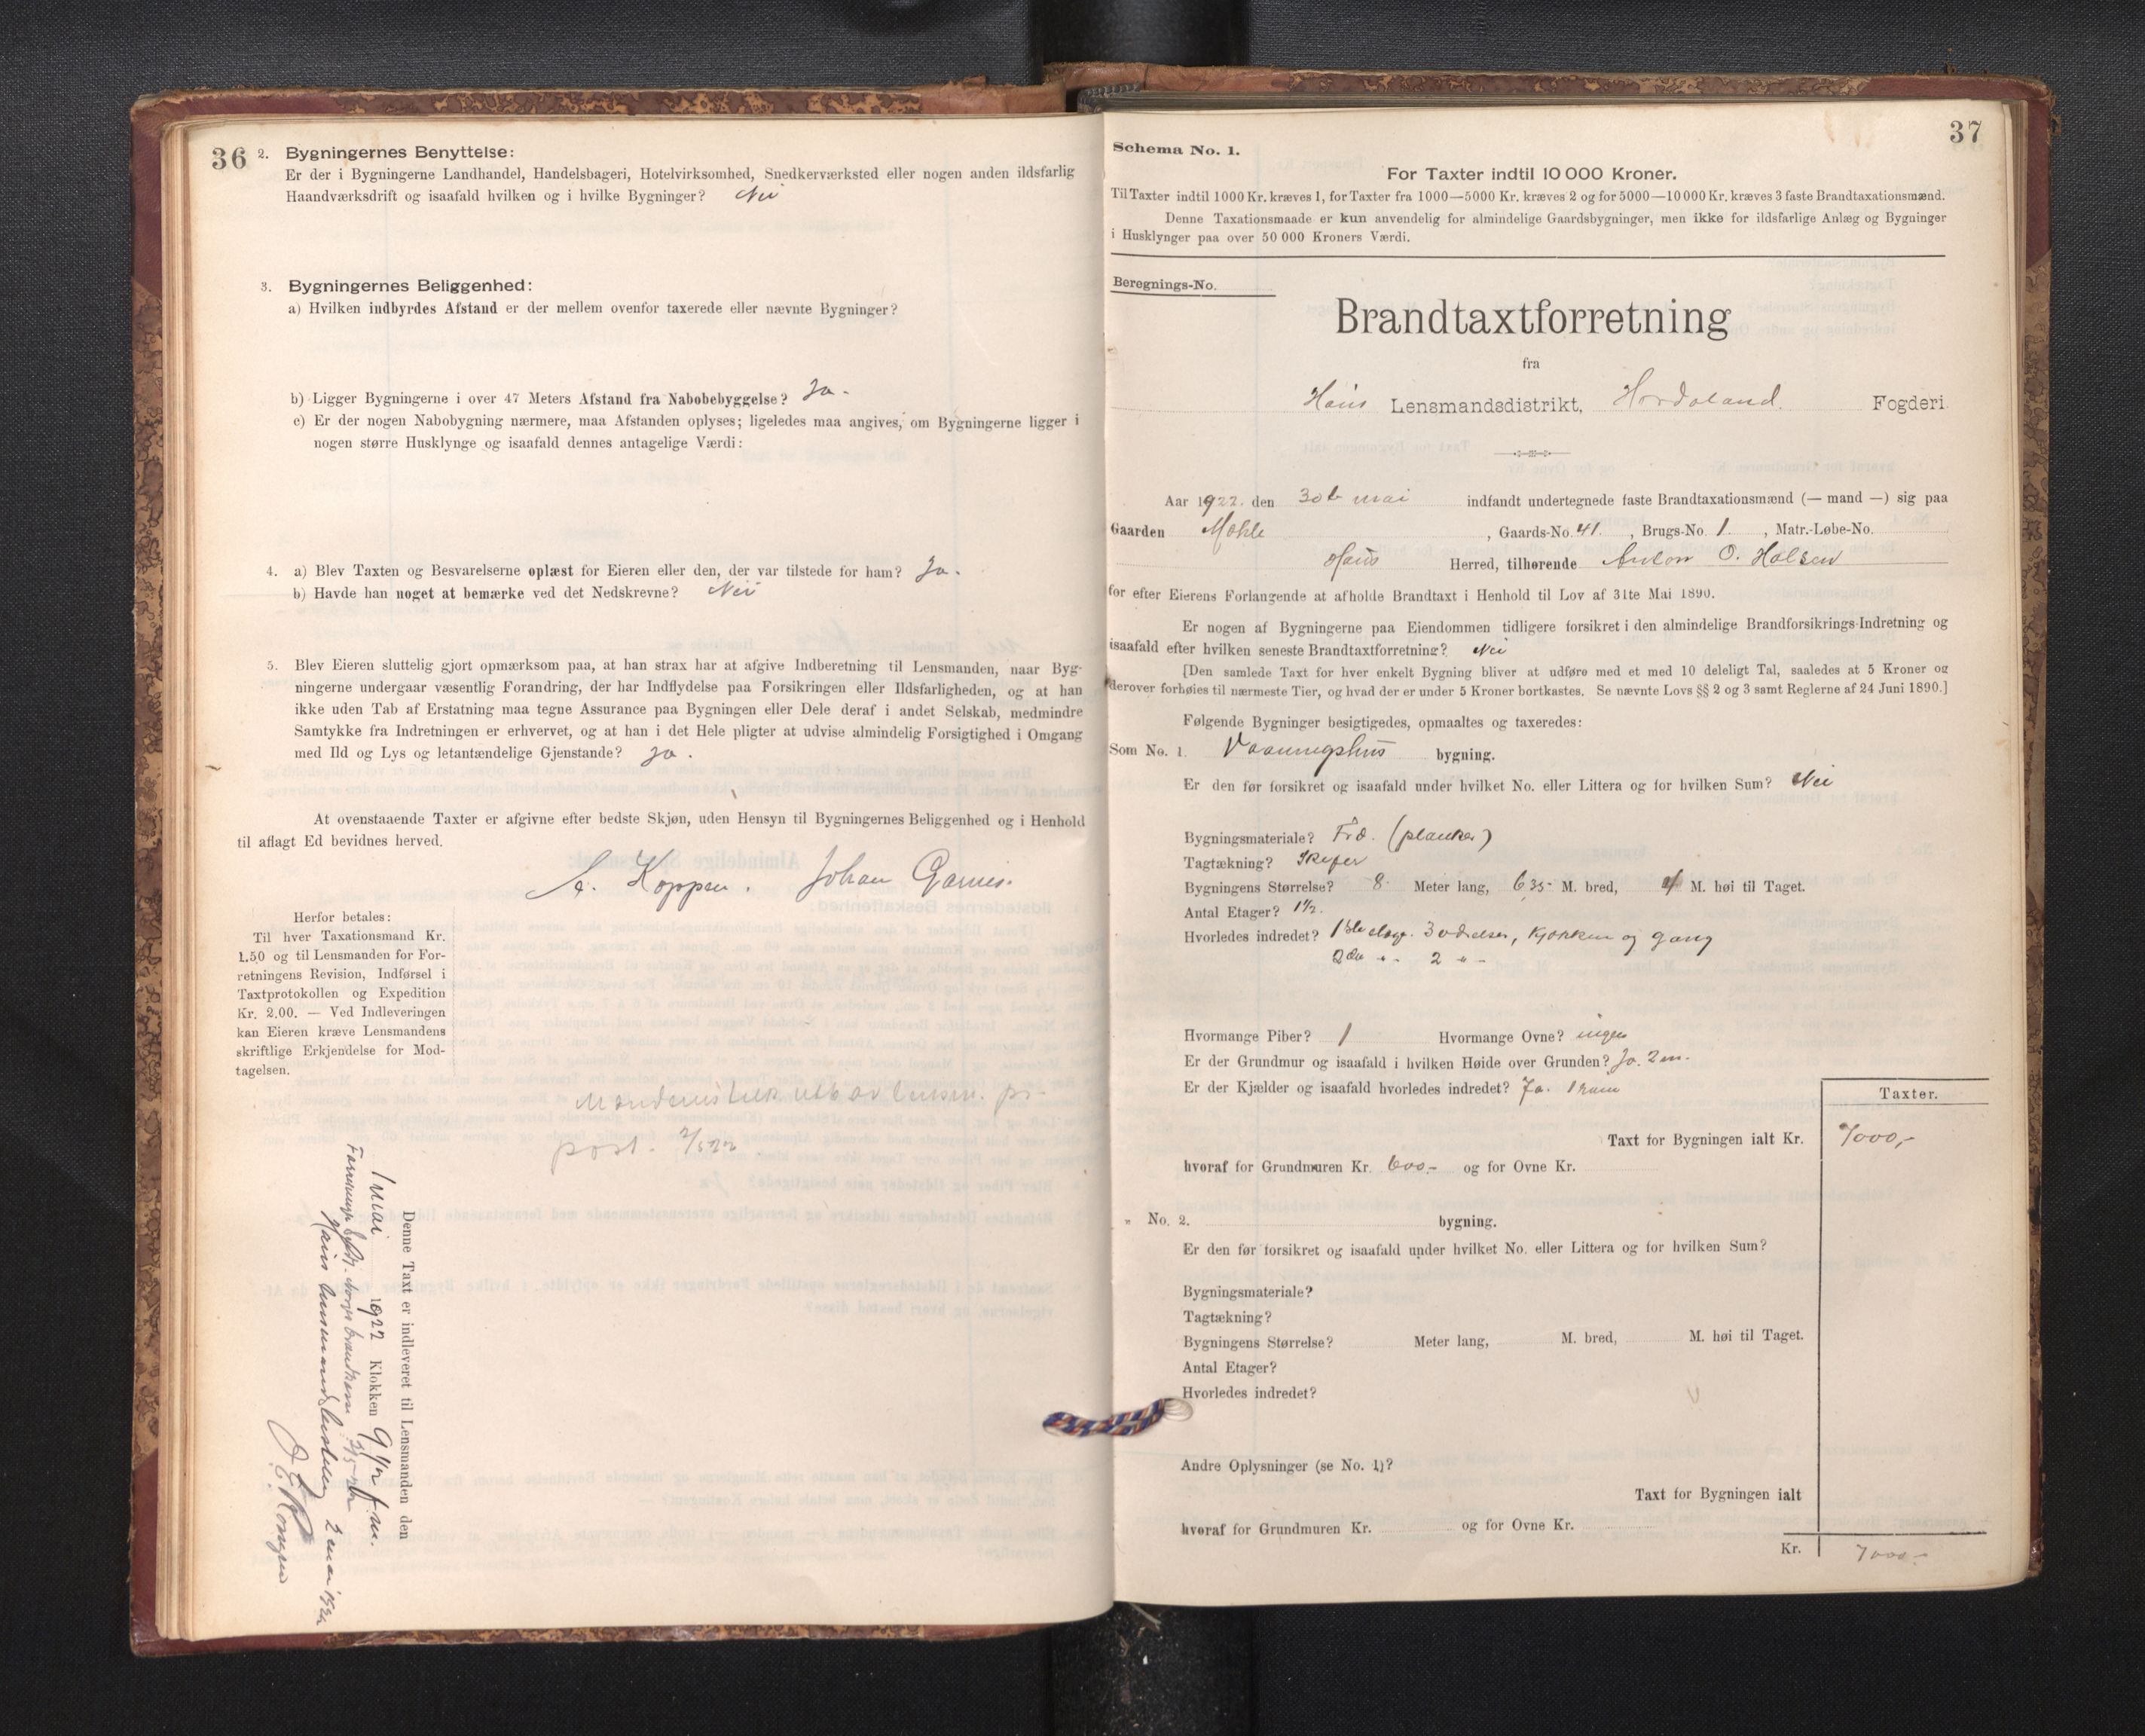 36
2. Bygningernes Benyttelse:
Er der i Bygningerne Landhandel, Handelsbageri, Hotelvirksomhed, Snedkerværksted eller nogen anden ildsfarlig
Haandværksdrift og isaafald hvilken og i hvilke Bygninger? Nei
3. Bygningernes Beliggenhed:
a) Hvilken indbyrdes Afstand er der mellem ovenfor taxerede eller nævnte Bygninger?
b) Ligger Bygningerne i over 47 Meters Afstand fra Nabobebyggelse? Ja.
c) Er der nogen Nabobygning nærmere, maa Afstanden oplyses; ligeledes maa angives, om Bygningerne ligger i
nogen større Husklynge og isaafald dennes antagelige Værdi:
4. a) Blev Taxten og Besvarelserne oplæst for Eieren eller den, der var tilstede for ham? Ja.
b) Havde han noget at bemærke ved det Nedskrevne? Nei
5. Blev Eieren sluttelig gjort opmærksom paa, at han strax har at afgive Indberetning til Lensmanden, naar Byg-
ningerne undergaar væsentlig Forandring, der har Indflydelse paa Forsikringen eller Ildsfarligheden, og at han
ikke uden Tab af Erstatning maa tegne Assurance paa Bygningen eller Dele deraf i andet Selskab, medmindre
Samtykke fra Indretningen er erhvervet, og at han i det Hele pligter at udvise almindelig Forsigtighed i Omgang
med Ild og Lys og letantændelige Gjenstande? Ja.
At ovenstaaende Taxter er afgivne efter bedste Skjøn, uden Hensyn til Bygningernes Beliggenhed og i Henhold
til aflagt Ed bevidnes herved.
A. Koppen. Johan Garnes.
Herfor betales:
Til hver Taxationsmand Kr.
1.50 og til Lensmanden for For-
retningens Revision, Indførsel i
Taxtprotokollen og Expedition
Kr. 2.00. — Ved Indleveringen
kan Eieren kræve Lensmandens
skriftlige Erkjendelse for Mod-
tagelsen.
post.
Denne Taxt er indleveret til Lensmanden den
1 mai 1922 Klokken 9 1/2 f.m.
Haus 2 mai 1922
37
Schema No. 1.
For Taxter indtil 10 000 Kroner.
Til Taxter indtil 1000 Kr. kræves 1, for Taxter fra 1000—5000 Kr. kræves 2 og for 5000—10 000 Kr. kræves 3 faste Brandtaxationsmænd.
Denne Taxationsmaade er kun anvendelig for almindelige Gaardsbygninger, men ikke for ildsfarlige Anlæg og Bygninger
i Husklynger paa over 50 000 Kroners Værdi.
Beregnings-No.
Brandtaxtforretning
fra
Haus Lensmandsdistrikt, Hordaland. Fogderi
Aar 1922. den 30te mai indfandt undertegnede faste Brandtaxationsmænd (— mand —) sig paa
Gaarden , Gaards-No. 41. , Brugs-No. 1. , Matr.-Løbe-No.
Haus Herred, tilhørende Anton O.
for efter Eierens Forlangende at afholde Brandtaxt i Henhold til Lov af 31te Mai 1890.
Er nogen af Bygningerne paa Eiendommen tidligere forsikret i den almindelige Brandforsikrings-Indretning og
isaafald efter hvilken seneste Brandtaxtforretning? Nei
[Den samlede Taxt for hver enkelt Bygning bliver at udføre med et med 10 deleligt Tal, saaledes at 5 Kroner og
derover forhøies til nærmeste Tier, og hvad der er under 5 Kroner bortkastes. Se nævnte Lovs §§ 2 og 3 samt Reglerne af 24 Juni 1890.]
Følgende Bygninger besigtigedes, opmaaltes og taxeredes:
Som No. 1. Vaaningshus bygning.
Er den før forsikret og isaafald under hvilket No. eller Littera og for hvilken Sum? Nei
Bygningsmateriale? Træ. (planker)
Tagtækning? Skifer
Bygningens Størrelse? 8. Meter lang, 6,35 M. bred, 4 M. høi til Taget.
Antal Etager? 1 1/2.
Hvorledes indredet? 1ste etage. 3 værelser, kjøkken og gang
2den " - 2 " -
Hvormange Piber? 1 Hvormange Ovne? ingen
Er der Grundmur og isaafald i hvilken Høide over Grunden? Ja. 2 m.
Er der Kjælder og isaafald hvorledes indredet? Ja. 1 rum
Taxter.
Taxt for Bygningen ialt Kr. 7000,-
hvoraf for Grundmuren Kr. 600.- og for Ovne Kr.
" No. 2. bygning.
Er den før forsikret og isaafald under hvilket No. eller Littera og for hvilken Sum?
Bygningsmateriale?
Tagtækning?
Bygningens Størrelse? Meter lang, M. bred, M. høi til Taget.
Antal Etager?
Hvorledes indredet?
Andre Oplysninger (se No. 1)?
Taxt for Bygningen ialt
hvoraf for Grundmuren Kr. og for Ovne Kr.
Kr. 7000.-